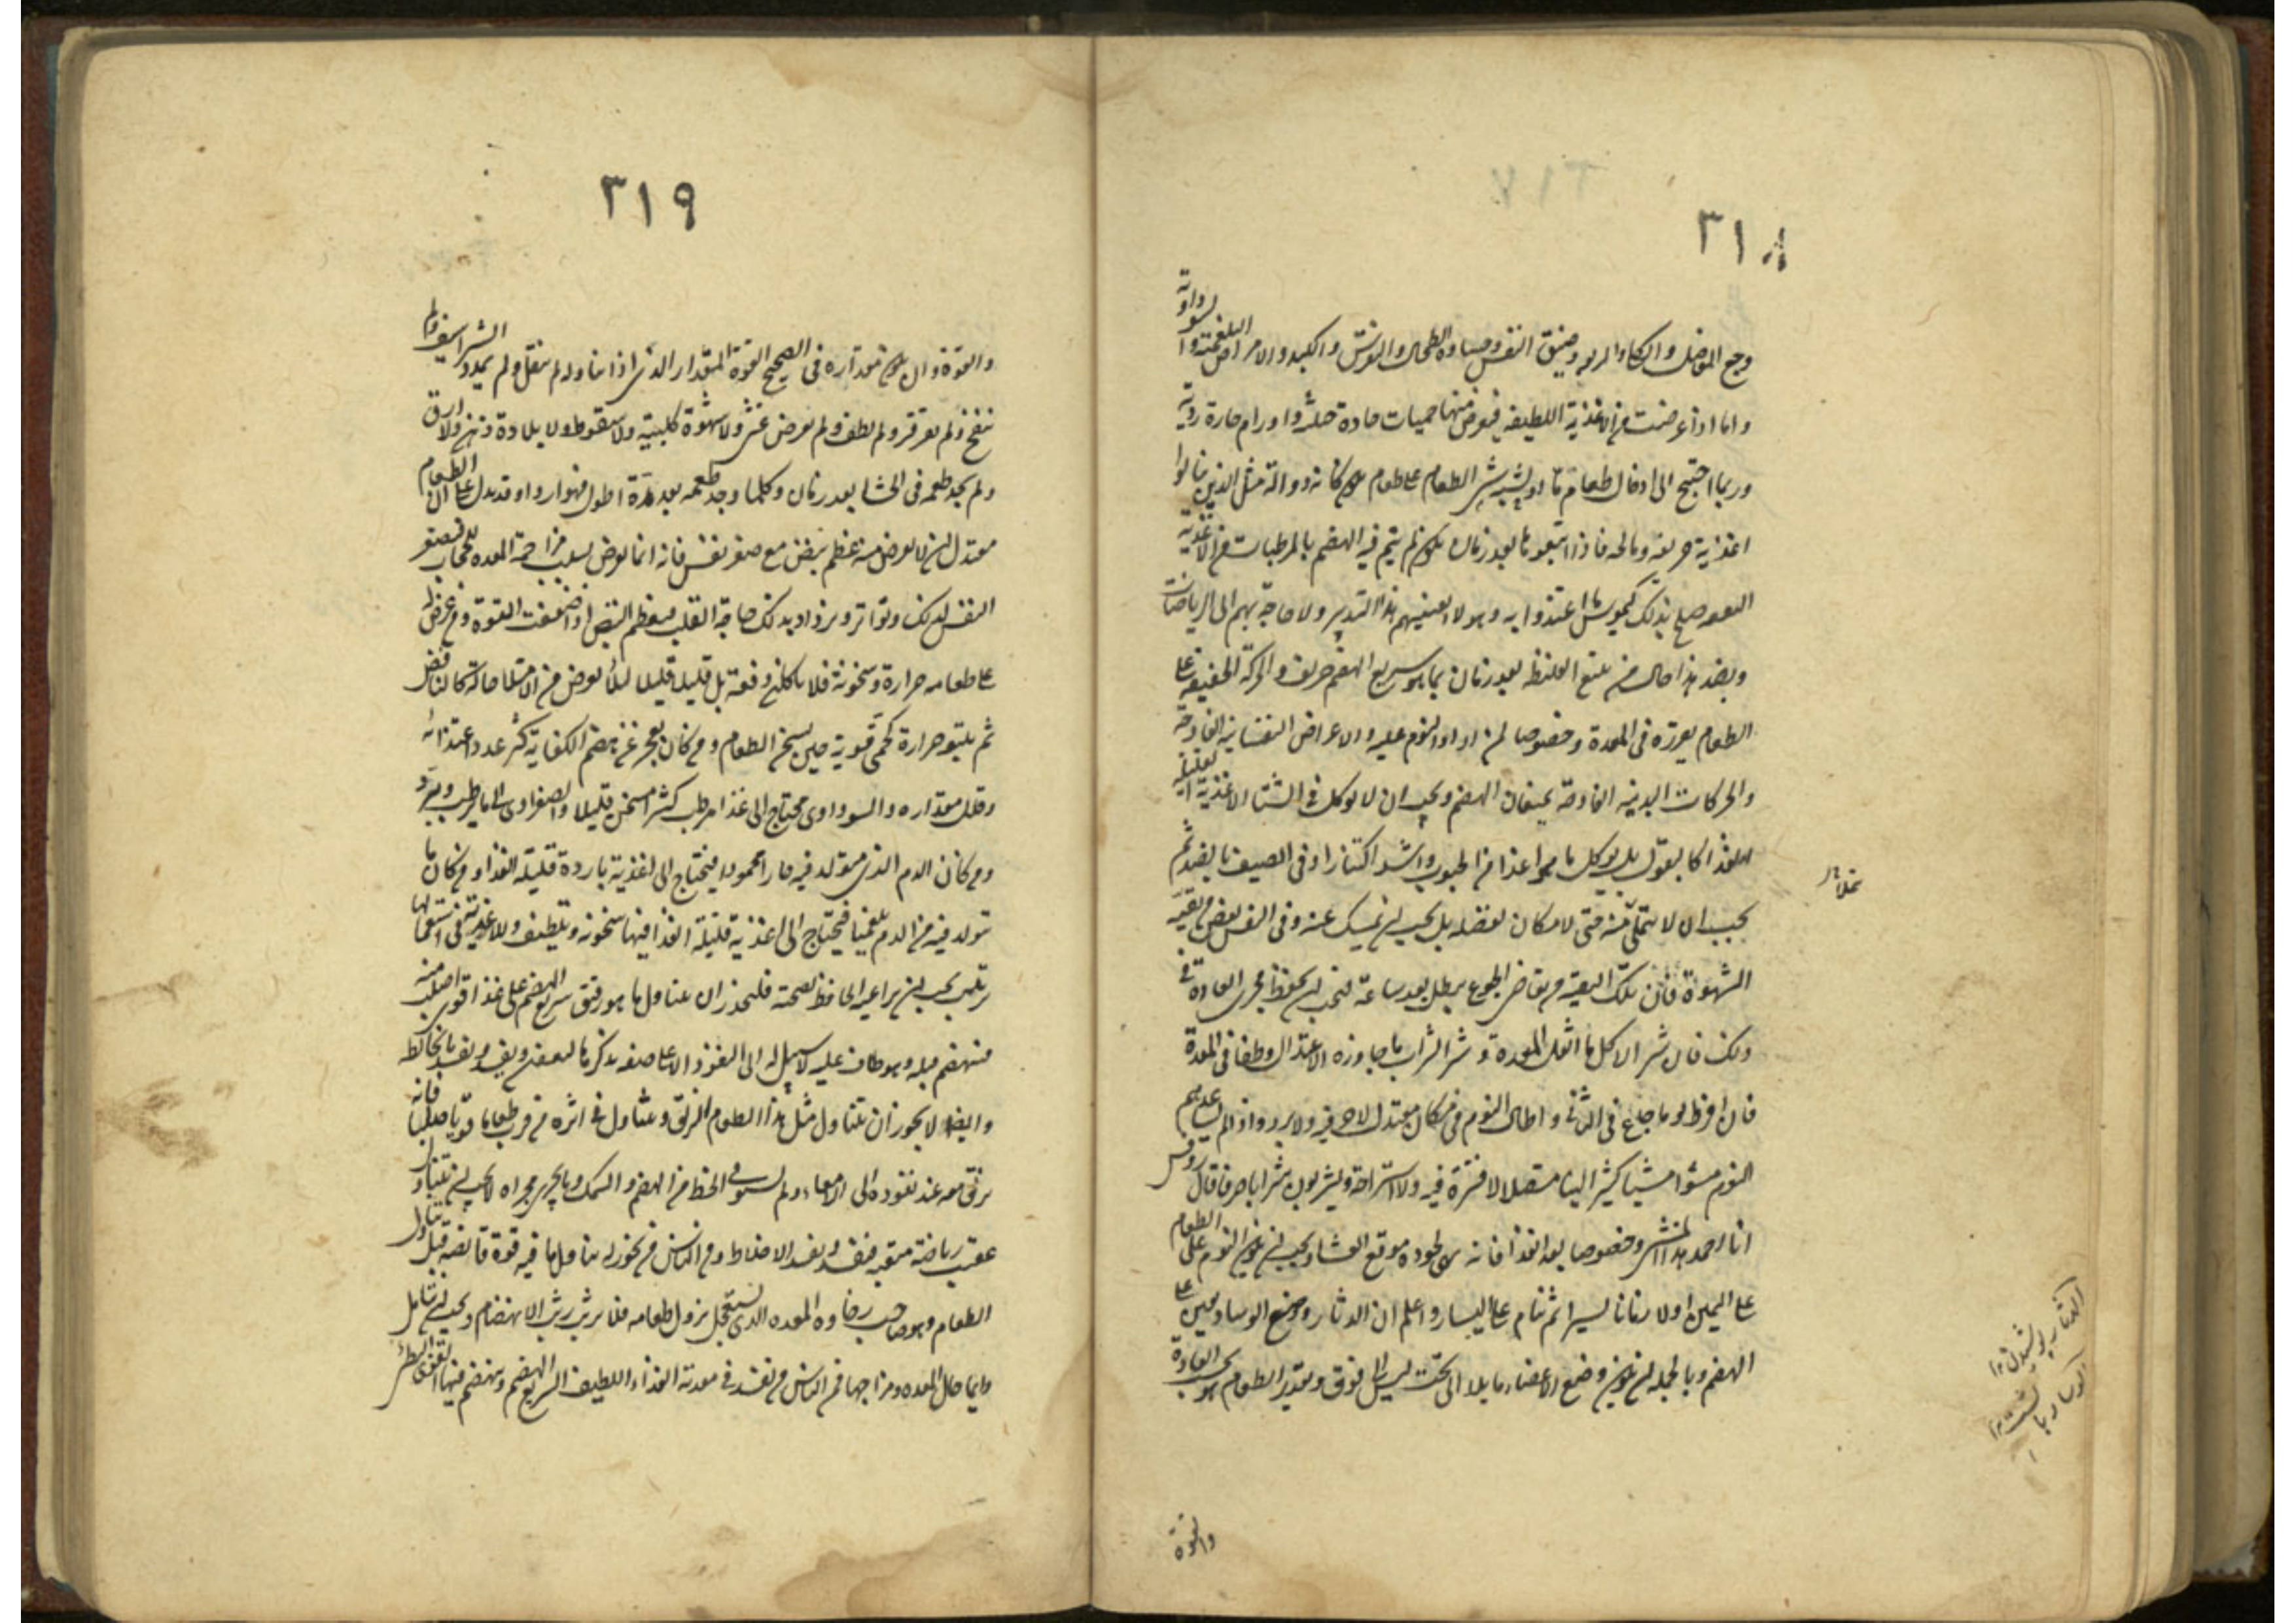 ٣١٨
وجع المفاصل والكلى والربو وضيق النفس وجساوة الطحال والنقرس والكبد والامراض البلغمية والسوداوية
واما اذا عرضت من الاغذية اللطيفة فيعرض منها حميات حادة خبيثة واورام حارة ردية
وربما احتيج الى ادخال طعام ما او شبه بشبه الطعام على طعام يكون كانه دواء له مثل الذين يتناولوا
اغذية حريفة ومالحة فاذا اتبعوها بعد زمان يكون لم يتم فيه الهضم بالمرطبات من الاغذية
التفهة صلح بذلك كيموس ما اغتذوا به وهولاء يغنيهم هذا التدبير ولا حاجة بهم الى الرياضات
وبضد هذا حال من يتبع الغليظة بعد زمان بما هو سريع الهضم حريف والحركة الخفيفة على
الطعام يقره فى المعدة وخصوصا لمن اراد النوم عليه والاعراض النفسانية الفادحة
والحركات البدنية الفادحة يمنعان الهضم ويجب ان لا يوكل فى الشتا الاغذية القليلة
الغذا كالبقول بل يوكل ما هو اغذا من الحبوب واشد اكتنازا وفى الصيف بالضد ثم
يجب ان لا يمتلئ منه حتى لا مكان لفضله بل يجب ان يمسك عنه وفى النفس بعض من بقية
الشهوة فان تلك البقية من تقاضى الجوع يبطل بعد ساعة فيجب ان يحفظ مجرى العادة فى
ذلك فان شر الاكل ما اثقل المعدة وشر الشراب ما جاوز الاعتدال وطفا فى المعدة
فان افرط يوما جاع فى الثانى واطال النوم فى مكان معتدل لا حر فيه ولا برد واذا لم يساعدهم
النوم مشوا مشيا كثيرا لينا متصلا لا فترة فيه ولا استراحة ويشربون شرابا صرفا قال روفس
انا احمد هذا المشى وخصوصا بعد الغذا فانه يهيئ لجودة موقع العشا ويجب ان يكون النوم على الطعام
على اليمين اولا زمانا يسيرا ثم ينام على اليسار واعلم ان الدثار ووضع الوساد يعين على
الهضم وبالجملة ان يكون وضع الاعضاء مايلا الى تحت ليس الى فوق وتقدير الطعام هو بحسب العادة
والقوة
الدثار پوشيدن ١٢
الوساد بالشت ١٢
٣١٩
والقوة وان يكون مقداره فى الصحيح القوة المقدار الذى اذا تناوله لم يثقل ولم يمدد الشراسيف ولم
ينفخ ولم يقرقر ولم يطف ولم يعرض غثى ولا شهوة كلبية ولا سقوط ولا بلادة ذهن ولا ارق
ولم يجد طعمه فى الجشا بعد زمان وكلما وجد طعمه بعد مدة اطول فهو اردا وقد يدل على ان الطعام
معتدل ان لا يعرض منه عظم نبض مع صغر نفس فانه انما يعرض بسبب مزاحمة المعدة للحجاب فيصغر
النفس لذلك وتواتر ويزداد بذلك حاجة القلب فيعظم النبض اذا ضعفت القوة ومن عرض
على طعامه حرارة وسخونة فلا ياكلن دفعة بل قليلا قليلا ليلا يعرض من الامتلا حالة كالنافض
ثم يتبع حرارة كحمى قوية حين يسخن الطعام ومن كان يعجز عن هضم الكفاية كثر عدد اغتذائه
وقلل مقداره والسوداوى يحتاج الى غذا مرطب كثيرا مسخن قليلا والصفراوى الى ما يرطب ويبرد
ومن كان الدم الذى يتولد فيه حارا محمودا فيحتاج الى اغذية باردة قليلة الغذا ومن كان ما
يتولد فيه من الدم بلغميا فيحتاج الى اغذية قليلة الغذا فيها سخونة وتلطيف وللاغذية فى استعمالها
ترتيب يجب ان يراعيه الحافظ لصحته فليحذر ان يتناول ما هو رقيق سريع الهضم على غذا قوى اصلب منه
فينهضم قبله وهو طاف عليه لا سبيل له الى النفوذ الا على صفة نذكرها فيعفن ويفسد ويفسد ما يخالطه
وايضا لا يجوز ان يتناول مثل هذا الطعام المزلق ويتناول فى اثره من قرب طعاما قويا صلبا فانه
يزلق معه عند نفوذه الى الامعاء ولم يستوف الحظ من الهضم والسمك وما يجرى مجراه لا يجب ان يتناول
عقيب رياضة متعبة فيفسد ويفسد الاخلاط ومن الناس من يجوز له تناول ما فيه قوة قابضة قبل تناول
الطعام وهو صاحب رخاوة المعدة الذى يستعجل نزول طعامه فلا يريث ريث الانهضام ويجب ان يتامل
دايما حال المعدة ومزاجها فمن الناس من يفسد فى معدته الغذاء اللطيف السريع الهضم وينهضم فيها القوى البطئ